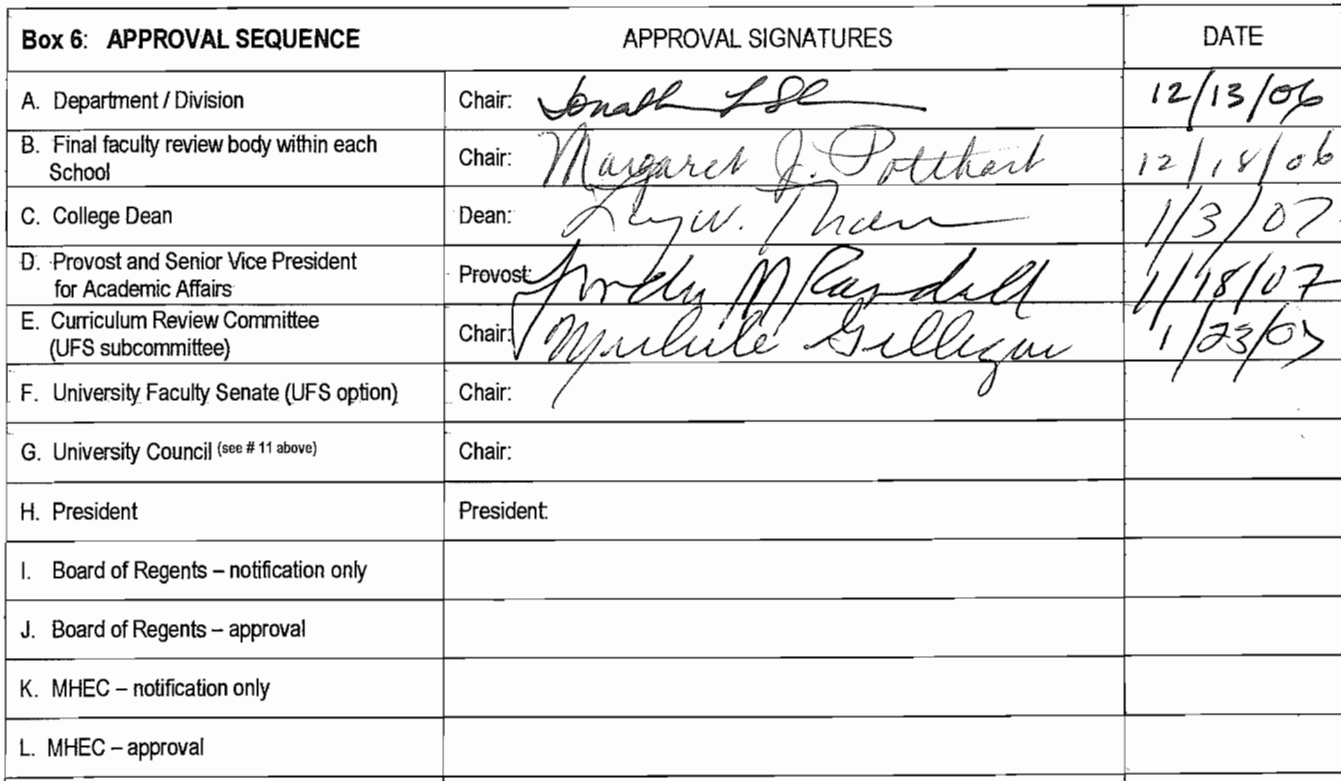 Box 6: APPROVAL SEQUENCE APPROVAL SIGNATURES DATE
A. Department / Division Chair: 12/13/06
B. Final faculty review body within each
School Chair: Margaret J. Potthast 12/18/06
C. College Dean Dean: 1/3/07
D. Provost and Senior Vice President
for Academic Affairs Provost: Randall 1/18/07
E. Curriculum Review Committee
(UFS subcommittee) Chair: Gilligan 1/23/07
F. University Faculty Senate (UFS option) Chair:
G. University Council (see # 11 above) Chair:
H. President President:
I. Board of Regents – notification only
J. Board of Regents – approval
K. MHEC – notification only
L. MHEC – approval